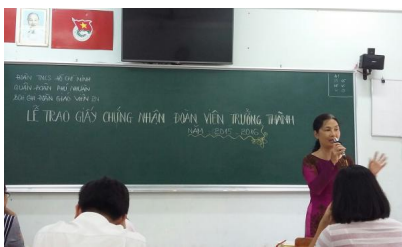 ĐOÀN TNCS HỒ CHÍ MINH
QUẬN ĐOÀN PHÚ NHUẬN
BCH CHI ĐOÀN GIÁO VIÊN
LỄ TRAO GIẤY CHỨNG NHẬN ĐOÀN VIÊN TRƯỞNG THÀNH
NĂM 2015 2016